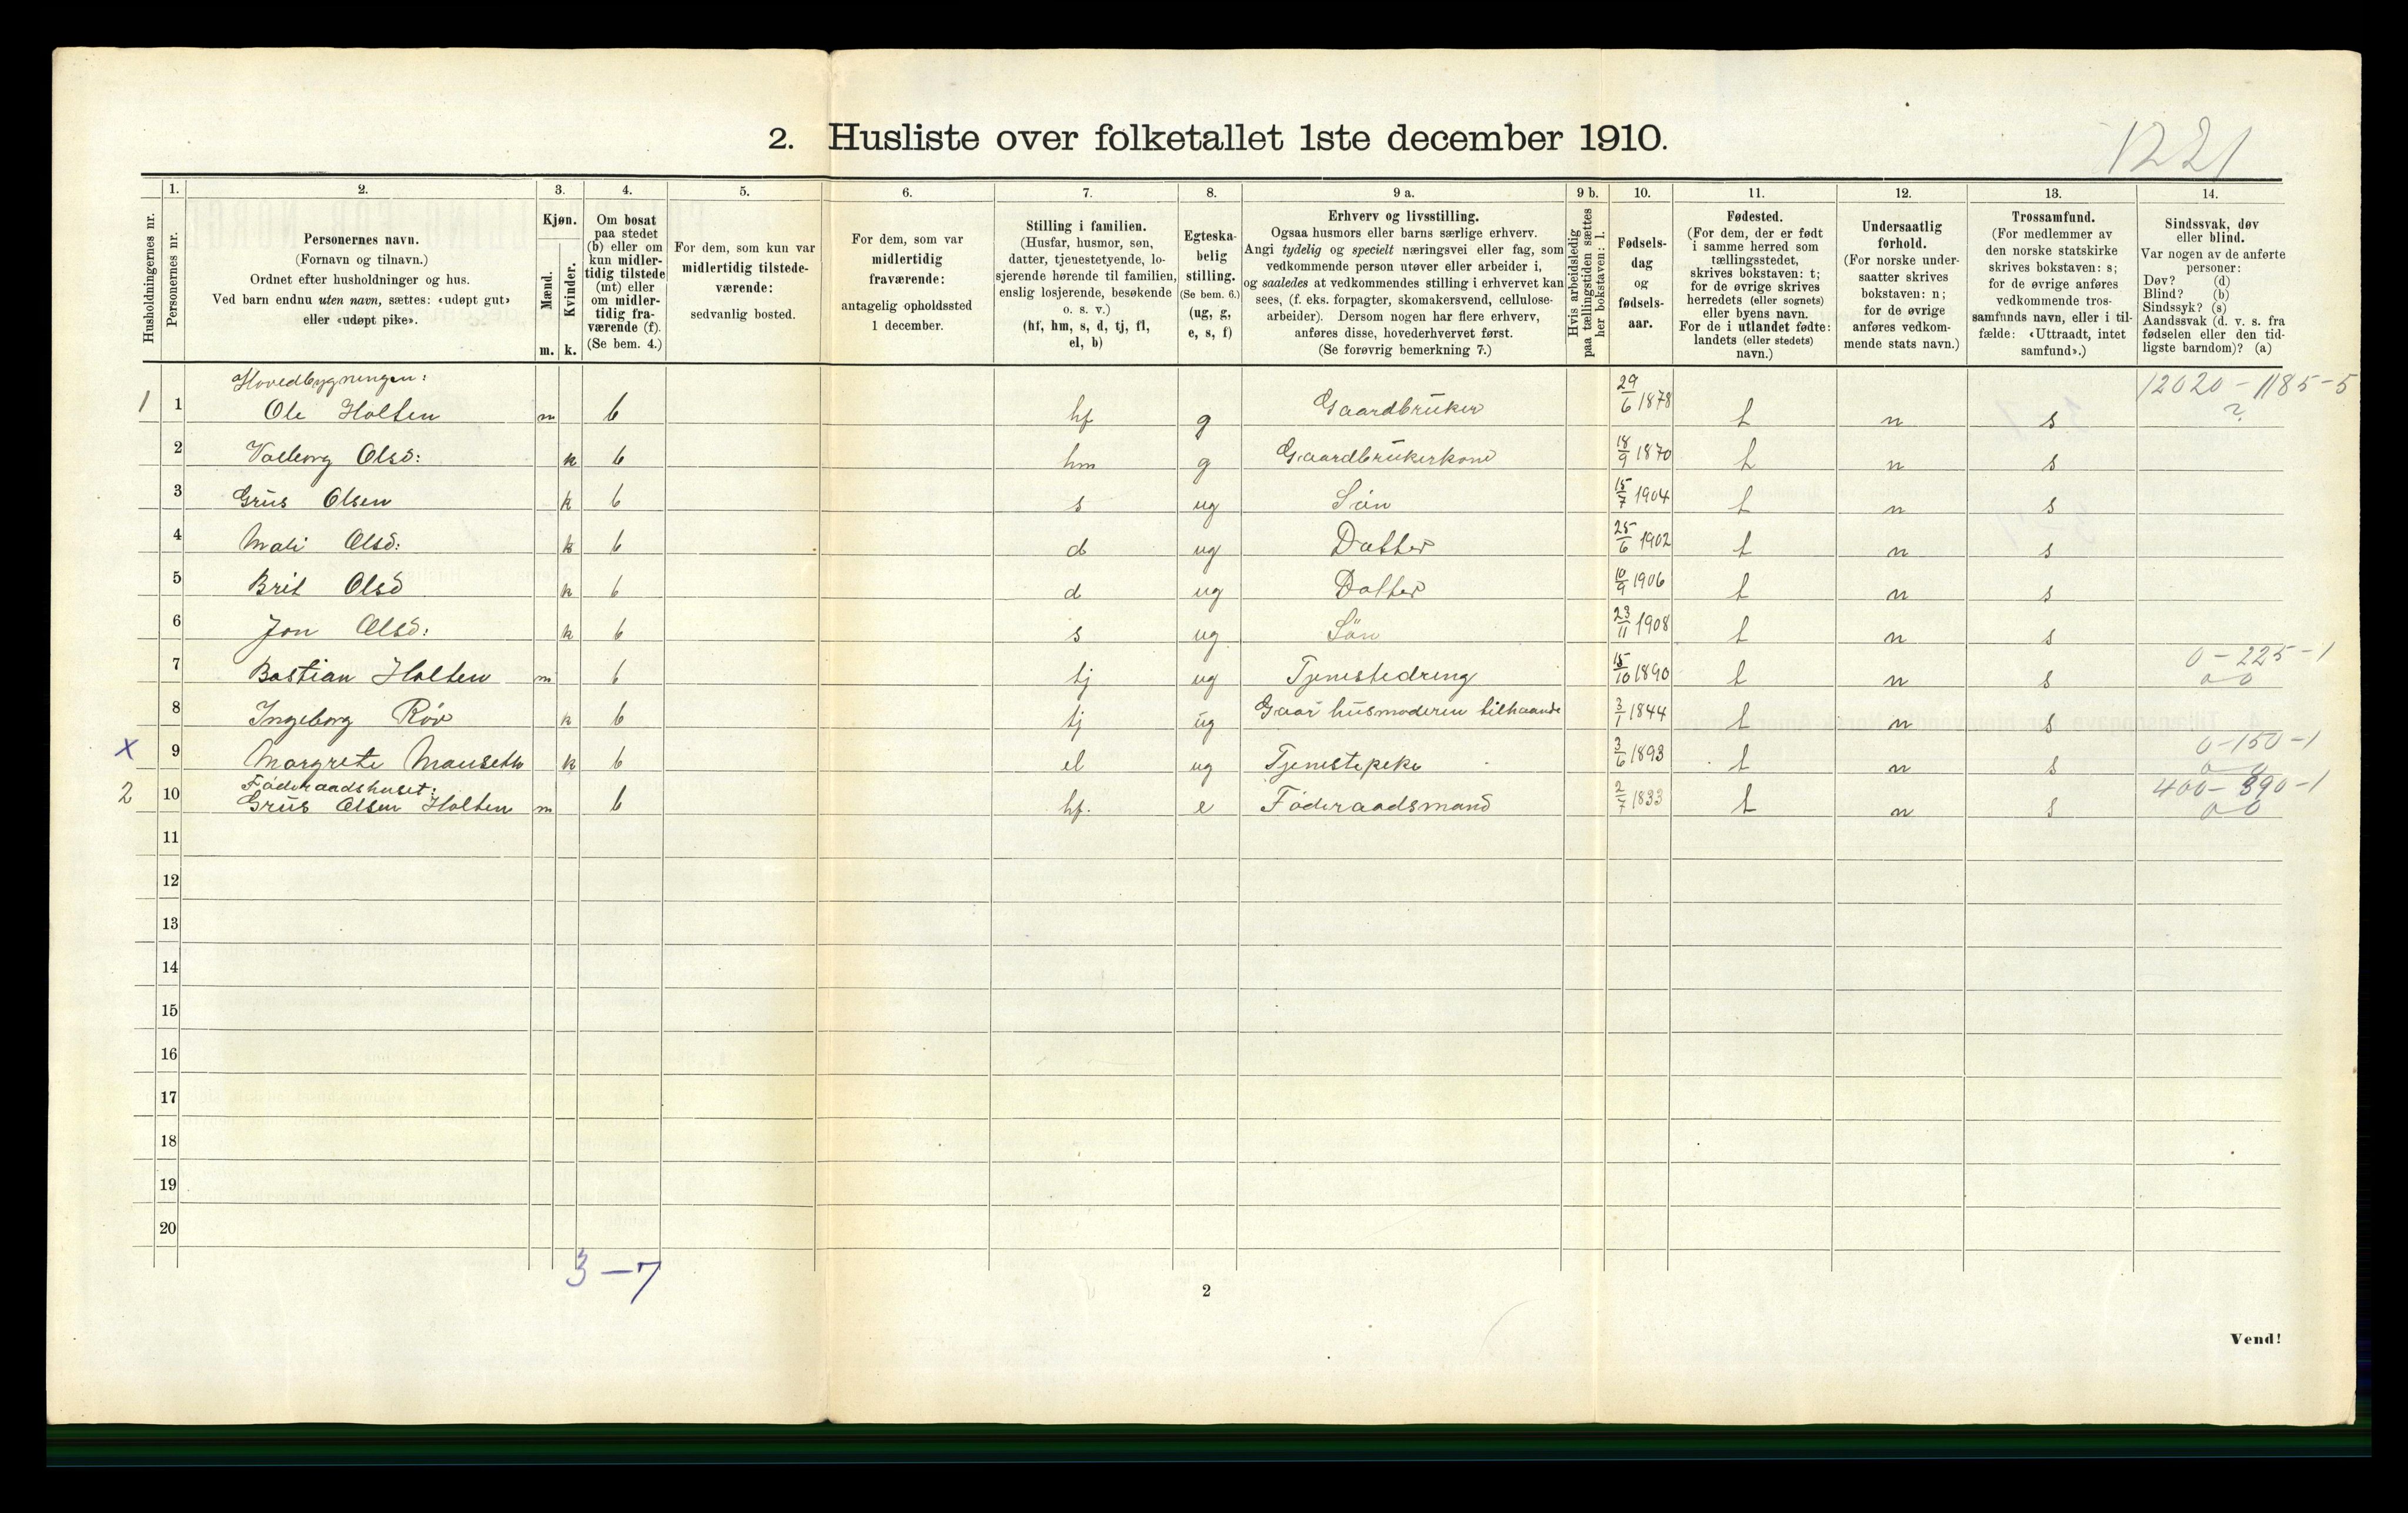 1221
2. Husliste over folketallet 1ste december 1910.
Husholdningernes nr.
1.
Personernes nr.
2.
Personernes navn.
(Fornavn og tilnavn.)
Ordnet efter husholdninger og hus.
Ved barn endnu uten navn, sættes: «udøpt gut»
eller «udøpt pike».
3.
Kjøn.
Mænd.
m.
Kvinder.
k.
4.
Om bosat
paa stedet
(b) eller om
kun midler-
tidig tilstede
(mt) eller
om midler-
tidig fra-
værende (f).
(Se bem. 4.)
5.
For dem, som kun var
midlertidig tilstede-
værende:
sedvanlig bosted.
6.
For dem, som var
midlertidig
fraværende:
antagelig opholdssted
1 december.
7.
Stilling i familien.
(Husfar, husmor, søn,
datter, tjenestetyende, lo-
sjerende hørende til familien,
enslig losjerende, besøkende
o. s. v.)
(hf, hm, s, d, tj, fl,
el, b)
8.
Egteska-
belig
stilling.
(Se bem. 6.)
(ug, g,
e, s, f)
9 a.
Erhverv og livsstilling.
Ogsaa husmors eller barns særlige erhverv.
Angi tydelig og specielt næringsvei eller fag, som
vedkommende person utøver eller arbeider i,
og saaledes at vedkommendes stilling i erhvervet kan
sees, (f. eks. forpagter, skomakersvend, cellulose-
arbeider). Dersom nogen har flere erhverv,
anføres disse, hovederhvervet først.
(Se forøvrig bemerkning 7.)
9 b.
Hvis arbeidsledig
paa tællingstiden sættes
her bokstaven: l.
10.
Fødsels-
dag
og
fødsels-
aar.
11.
Fødested.
(For dem, der er født
i samme herred som
tællingsstedet,
skrives bokstaven: t;
for de øvrige skrives
herredets (eller sognets)
eller byens navn.
For de i utlandet fødte:
landets (eller stedets)
navn.)
12.
Undersaatlig
forhold.
(For norske under-
saatter skrives
bokstaven: n;
for de øvrige
anføres vedkom-
mende stats navn.)
13.
Trossamfund.
(For medlemmer av
den norske statskirke
skrives bokstaven: s;
for de øvrige anføres
vedkommende tros-
samfunds navn, eller i til-
fælde: «Uttraadt, intet
samfund».)
14.
Sindssvak, døv
eller blind.
Var nogen av de anførte
personer:
Døv? (d)
Blind? (b)
Sindssyk? (s)
Aandssvak (d. v. s. fra
fødselen eller den tid-
ligste barndom)? (a)
Hovedbygningen: 12020 - 1185-5
1 1 Ole Holten m b hf g Gaardbruker 29/6 1878 t n s ?
2 Valborg Olsd: k b hm g Gaardbrukerkone 18/9 1870 t n s
3 Grus Olsen k b s ug Sön 15/7 1904 t n s
4 Mali Olsd: k b d ug Datter 25/6 1902 t n s
5 Brit Olsd k b d ug Datter 10/9 1906 t n s
6 Jon Olsd: k b s ug Sön 23/11 1908 t n s
0 - 225 - 1
7 Bastian Holten m b tj ug Tjenestedreng 15/10 1890 t n s 0 0
8 Ingeborg Röv k b tj ug Gaar husmoderen tilhaande 3/1 1844 t n s
0-150-1
x 9 Margrete Mauseth k b el ug Tjenestepeke 3/6 1893 t n s 0 0
Föderaadshuset: 400-390-1
2 10 Grus Olsen Holten m b hf. e Föderaadsmand 2/7 1833 t n s 0 0
11
12
13
14
15
16
17
18
19
20
3-7
2
Vend!